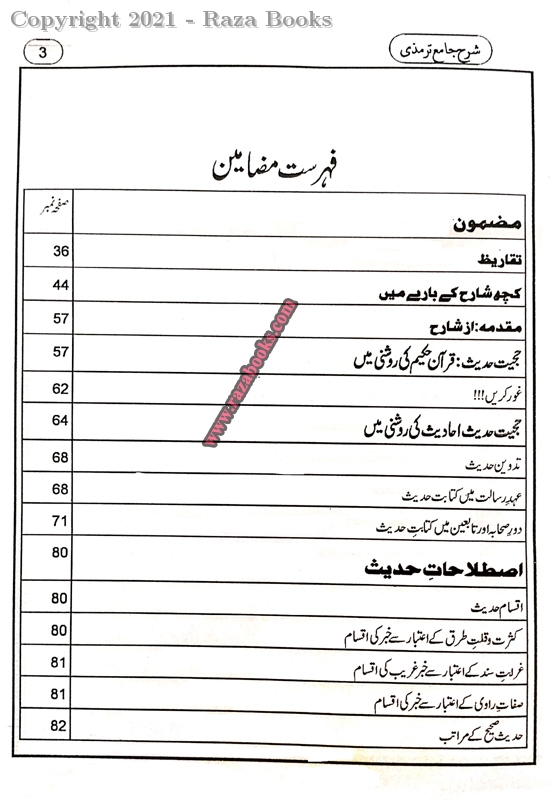 Copyright 2021 - Raza Books
3
شرح جامع ترمذی
فہرست مضامین
مضمون صفحہ نمبر
تقاریظ 36
کچھ شارح کے بارے میں 44
مقدمہ: از شارح 57
حجیت حدیث: قرآن حکیم کی روشنی میں 57
غور کریں!!! 62
حجیت حدیث احادیث کی روشنی میں 64
تدوین حدیث 68
عہدِ رسالت میں کتابت حدیث 68
دورِ صحابہ اور تابعین میں کتابتِ حدیث 71
اصطلاحاتِ حدیث 80
اقسام حدیث 80
کثرت و قلتِ طرق کے اعتبار سے خبر کی اقسام 80
غرابتِ سند کے اعتبار سے خبر غریب کی اقسام 81
صفاتِ راوی کے اعتبار سے خبر کی اقسام 81
حدیث صحیح کے مراتب 82
www.razabooks.com